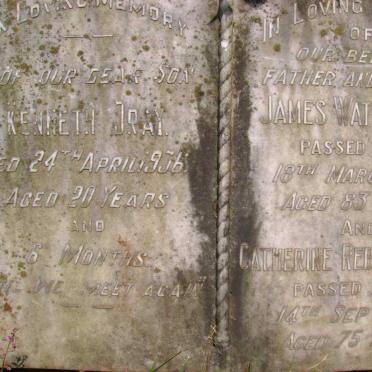 In Loving Memory
OF OUR DEAR SON
KENNETH DRAY.
24TH APRIL 1936
AGED 20 YEARS
AND
6 MONTHS.
WE MEET AGAIN"
IN LOVING
OF
OUR
FATHER AND
JAMES WAT
PASSED
18TH MAR
AGED 83
AND
CATHERINE RE
PASSED
14TH SEP
AGED 75